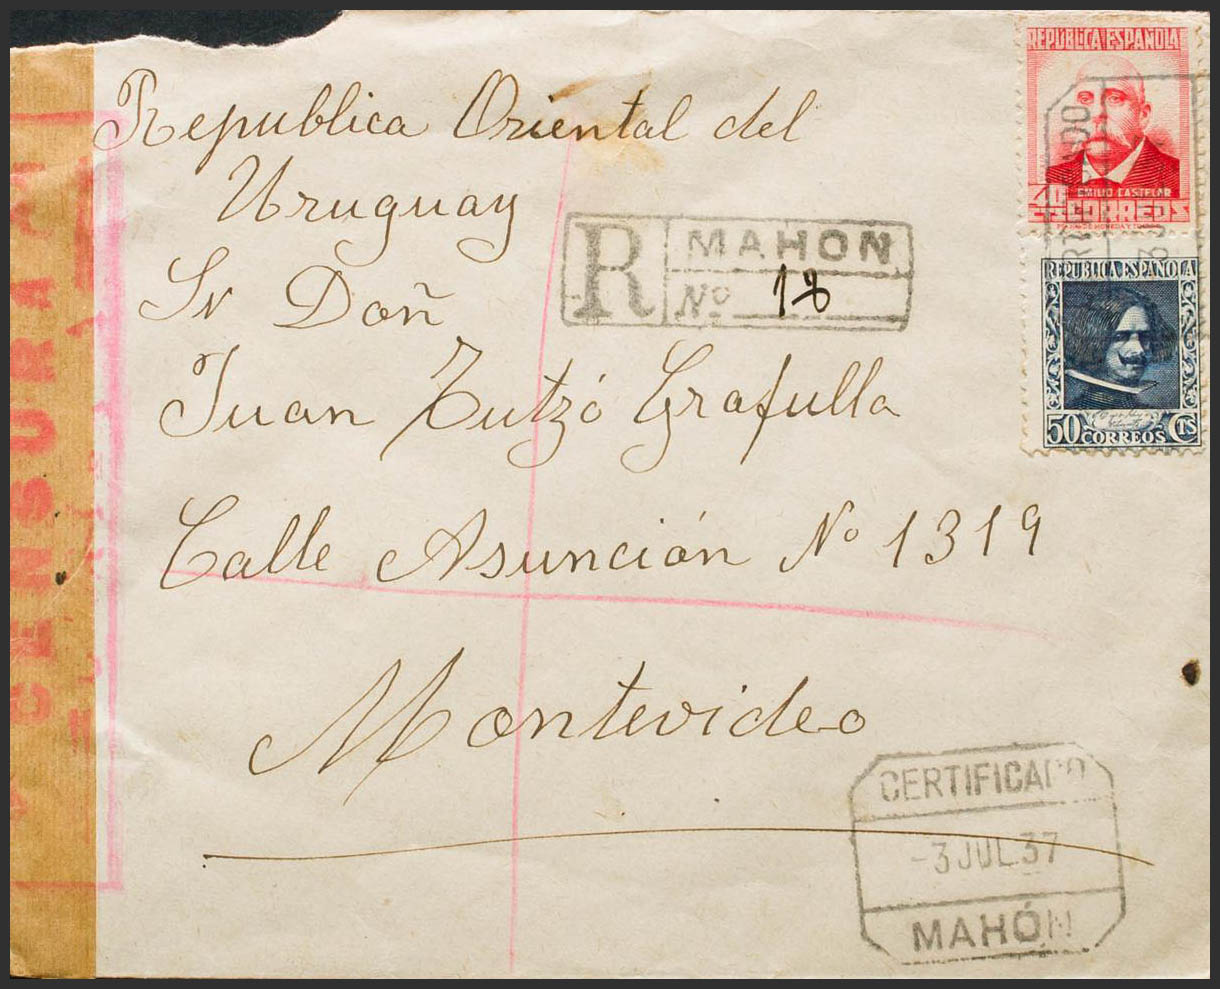 REPÚBLICA ESPAÑOLA
EMILIO CASTELAR
40
CTS CORREOS
REPUBLICA ESPAÑOLA
50 CORREOS CTS
Republica Oriental del
Uruguay
Sr Doñ
Juan Tutzó Grafulla
Calle Asunción Nº 1319
Montevideo
R MAHON
Nº 18
CERTIFICADO
-3 JUL.37
MAHÓN
CENSURA